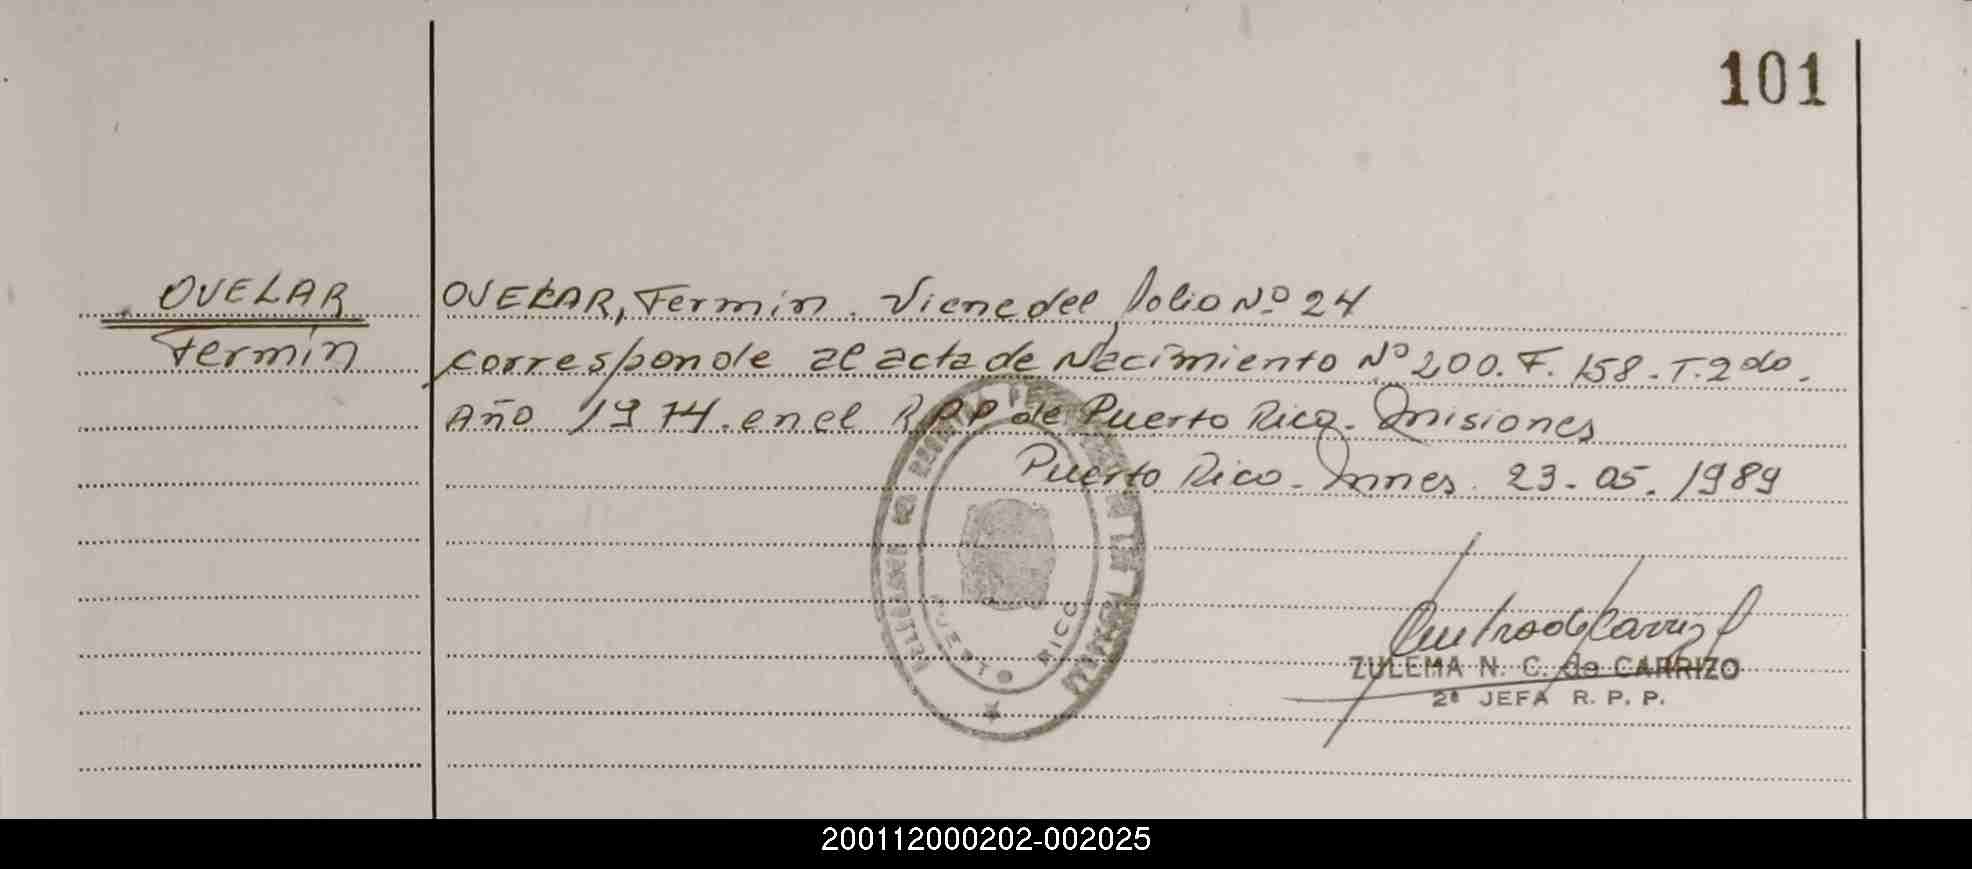 101
OVELAR
Fermín
OVELAR, Fermín. Viene del folio Nº 24
corresponde al acta de Nacimiento Nº 200. F. 158. T. 2do.
Año 1974. en el RPP de Puerto Rico. Misiones
Puerto Rico. Mnes. 23-05-1989
PUERTO RICO
ZULEMA N. C. de CARRIZO
2ª JEFA R. P. P.
200112000202-002025